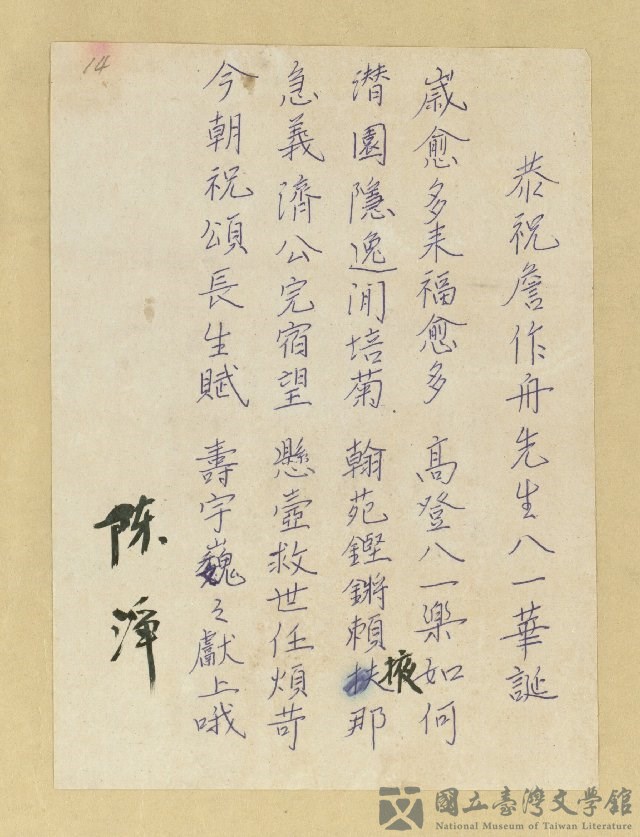 14
恭祝詹作舟先生八一華誕
歲愈多来福愈多 高登八一樂如何
潜園隱逸闲培菊 翰苑鏗鏘賴扶掖那
急義濟公完宿望 懸壺救世任煩苛
今朝祝頌長生賦 壽宇巍々獻上哦
陈
國立臺灣文學館
National Museum of Taiwan Literature